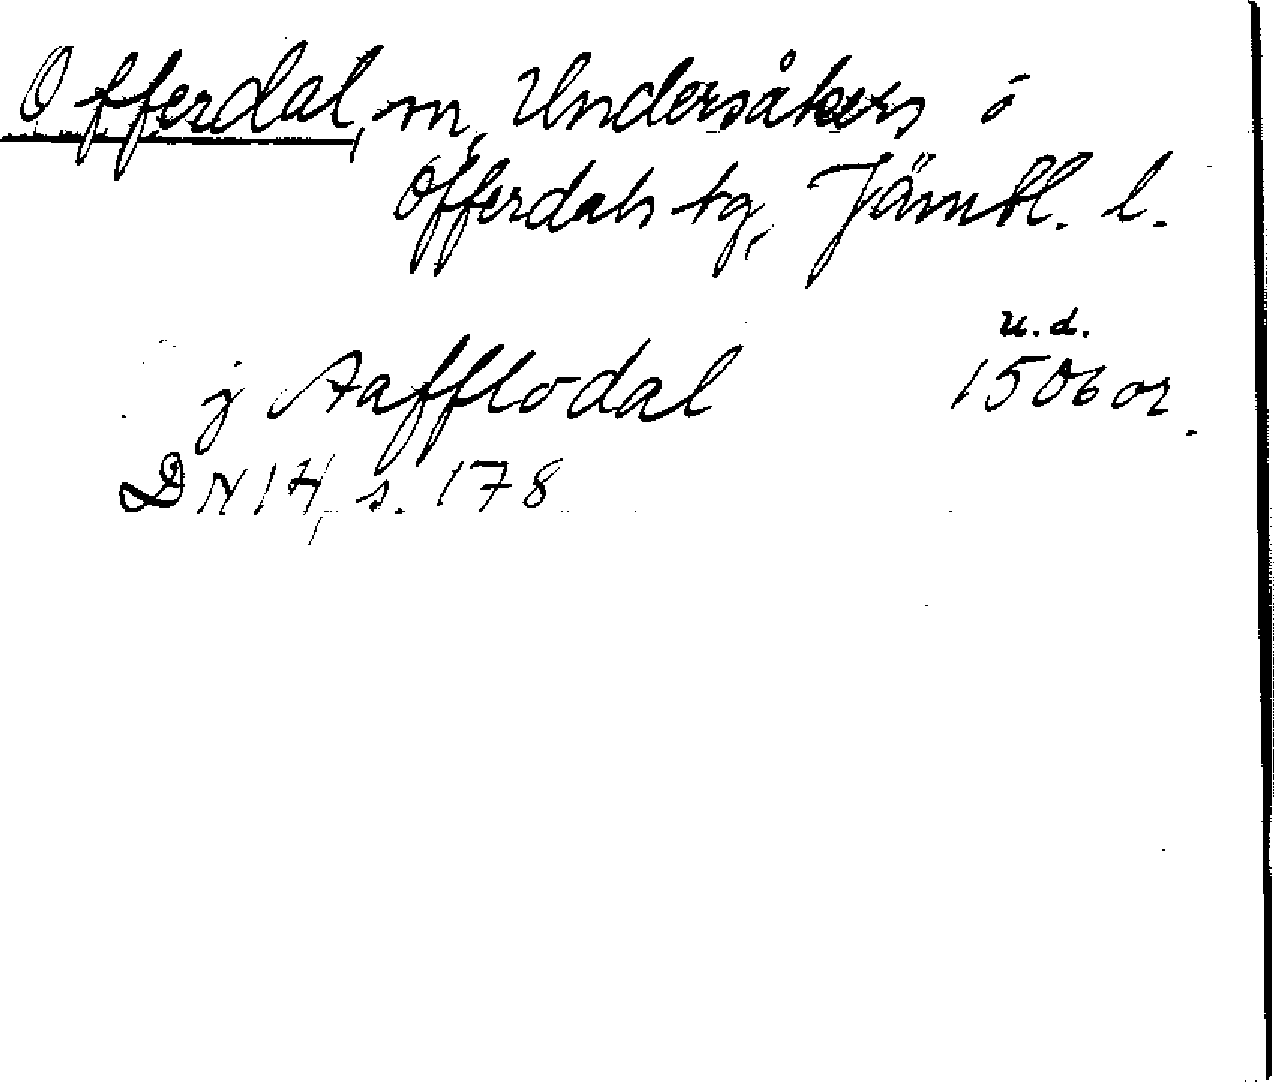 Offerdal, sn, Undersåkers o
Offerdals tg, Jämtl. l.
j Aafflodal u.d. 1506 or.
DN 14, s. 178